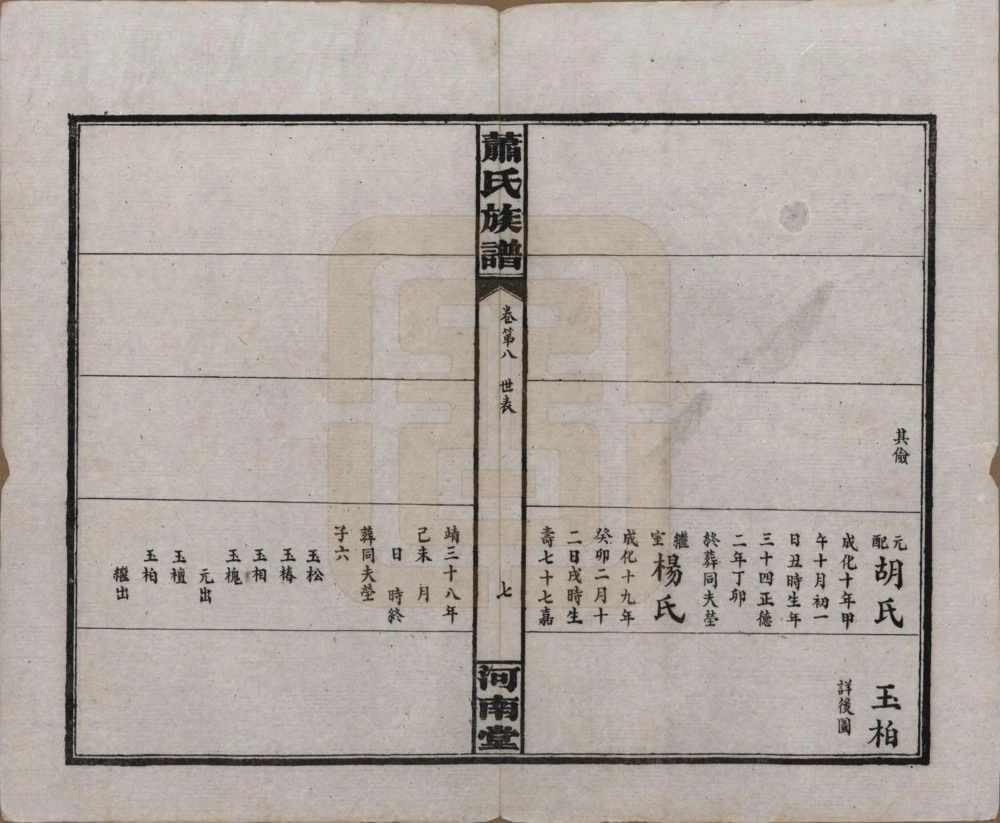 其儉
元配胡氏
成化十年甲
午十月初一
日丑時生年
三十四正德
二年丁卯
終葬同夫塋
繼室楊氏
成化十九年
癸卯二月十
二日戌時生
壽七十七嘉
玉柏
詳後圖
蕭氏族譜
卷第八 世表
七
河南堂
靖三十八年
己未 月
日 時終
葬同夫塋
子六
玉松
玉椿
玉相
玉槐
元出
玉檀
玉柏
繼出